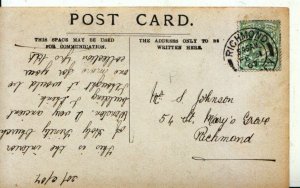 POST CARD.
THIS SPACE MAY BE USED
FOR COMMUNICATION.
THE ADDRESS ONLY TO BE
WRITTEN HERE.
RICHMOND
This is the interior
of Holy Trinity Church
very ancient
building I think.
I thought it would be
one more for your
collection
S Johnson
54 St Mary's Grove
Richmond